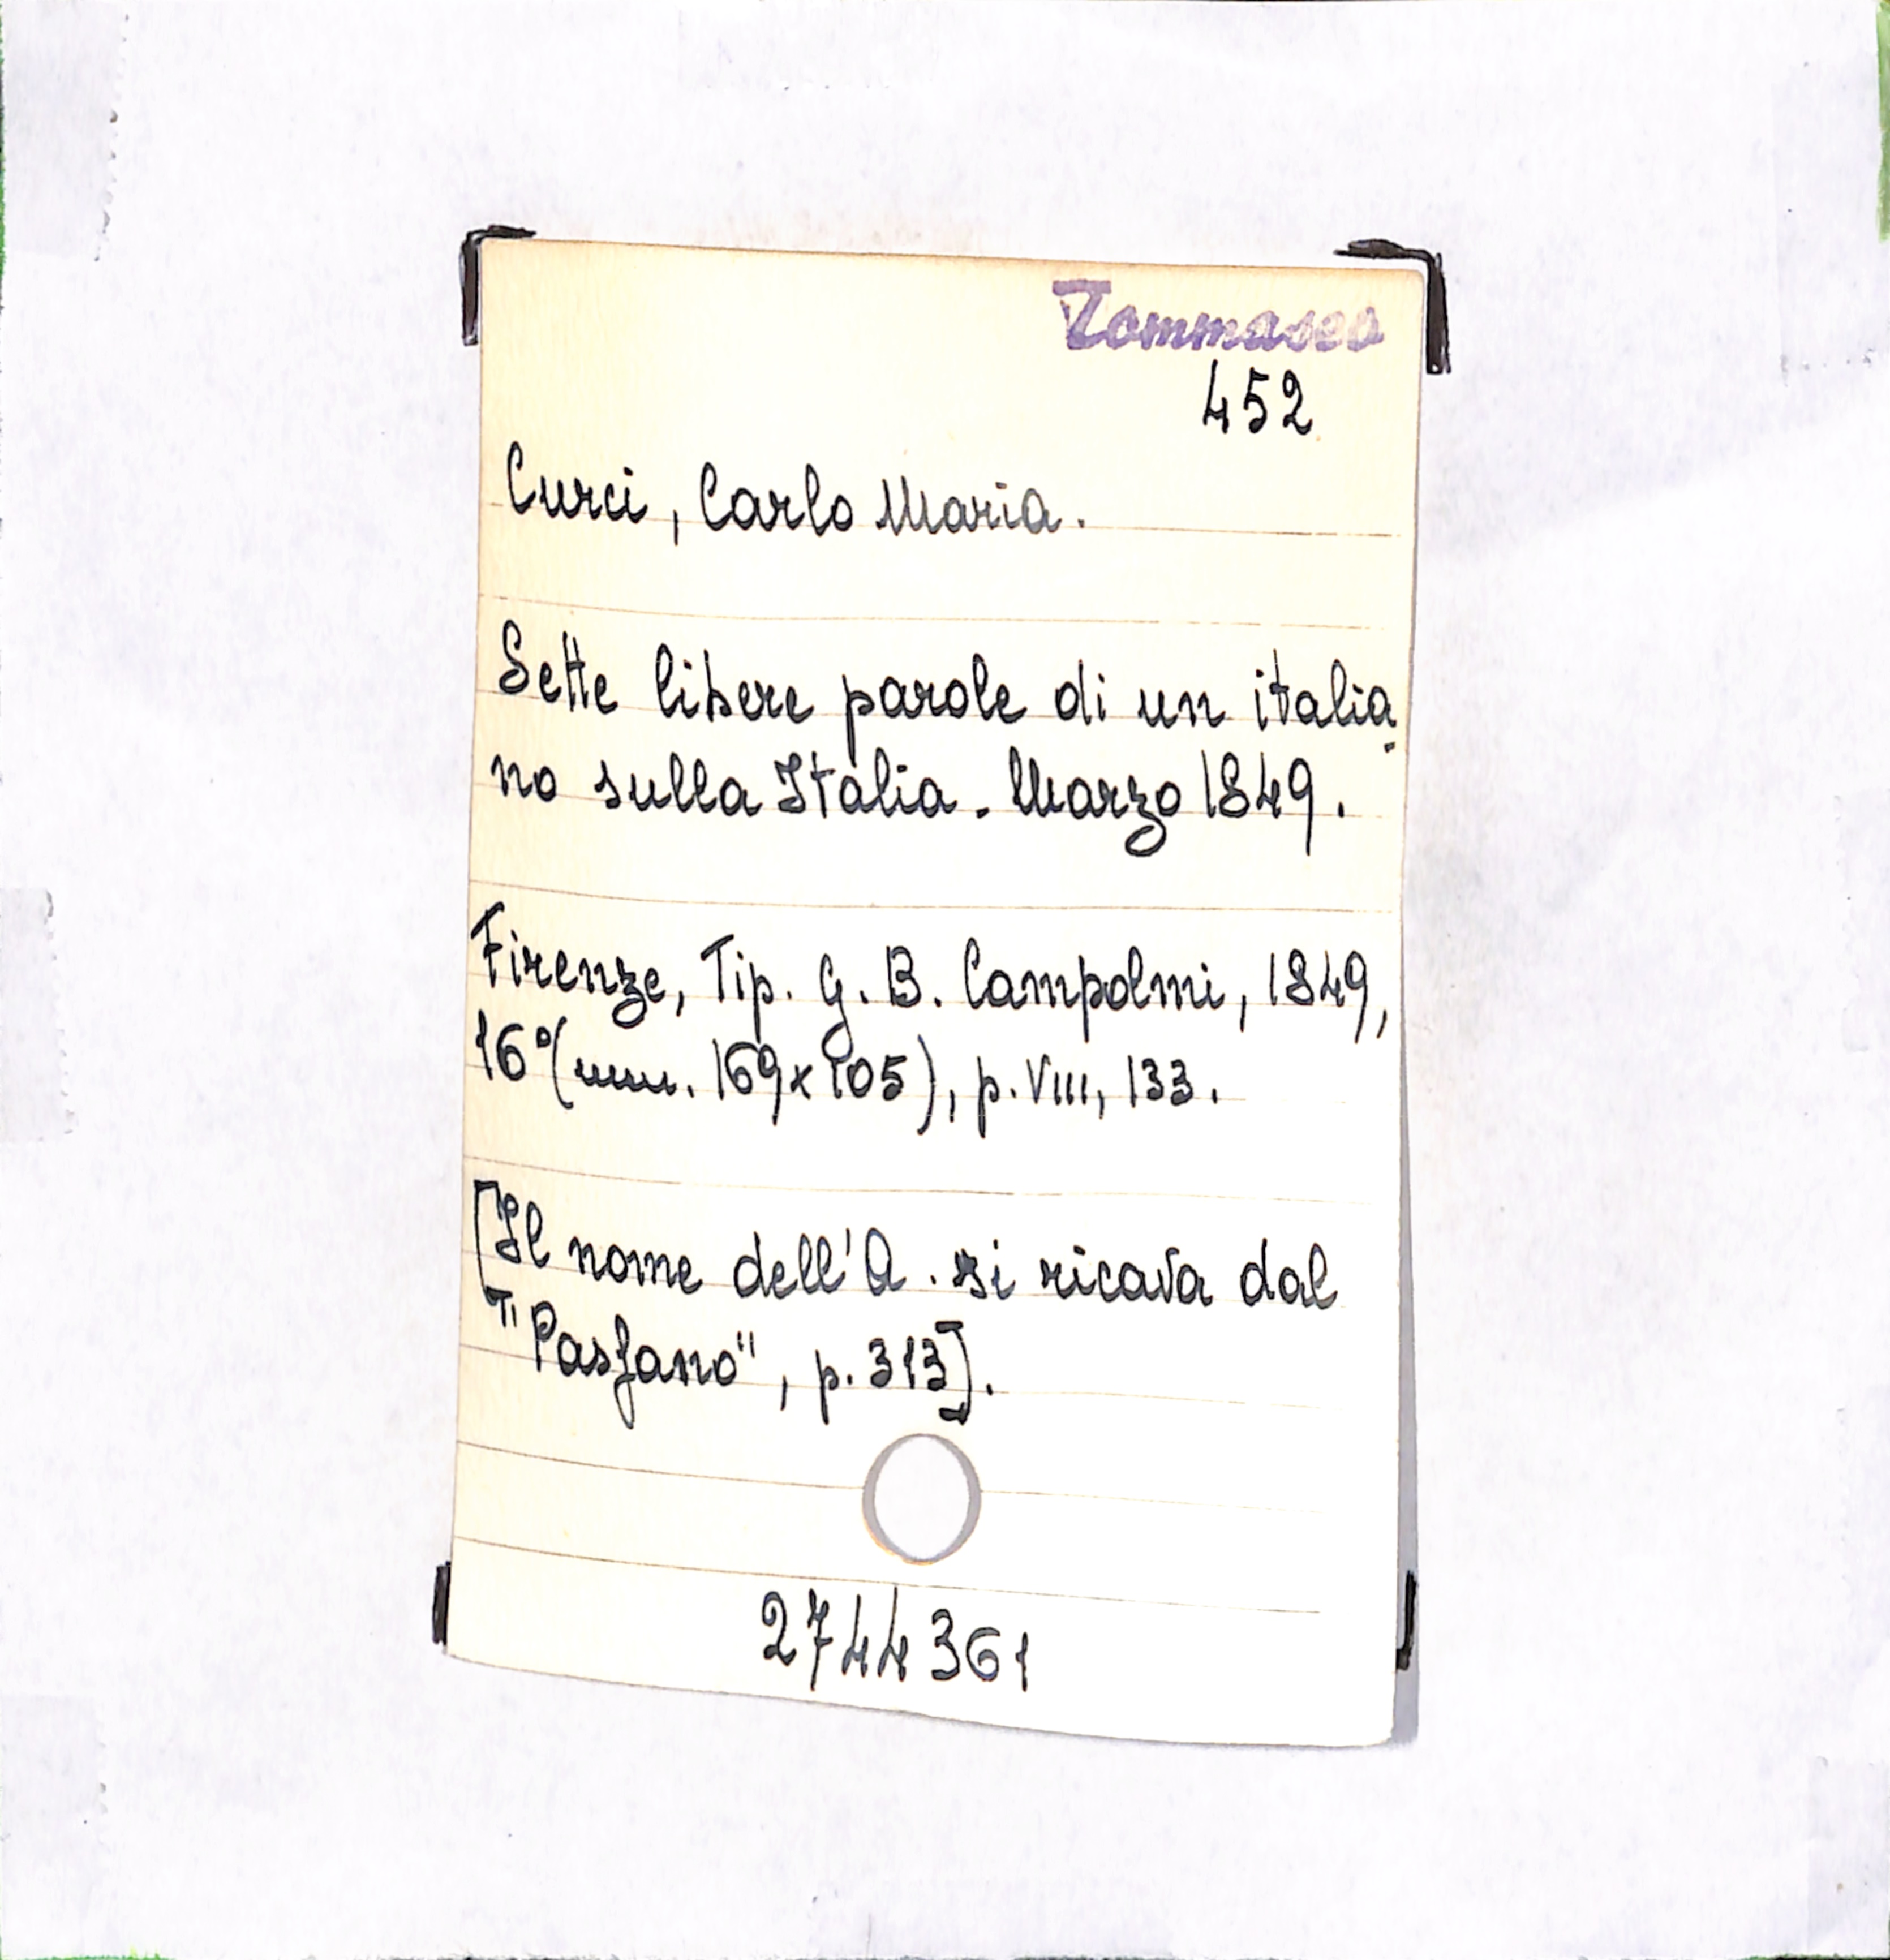 Tommaseo
452
Curci, Carlo Maria.
Sette libere parole di un italia-
no sulla Italia. Marzo 1849.
Firenze, Tip. G. B. Campolmi, 1849,
16° (mm. 169x105), p. VIII, 133.
[Il nome dell'A. si ricava dal
"Passano", p. 313].
2744361